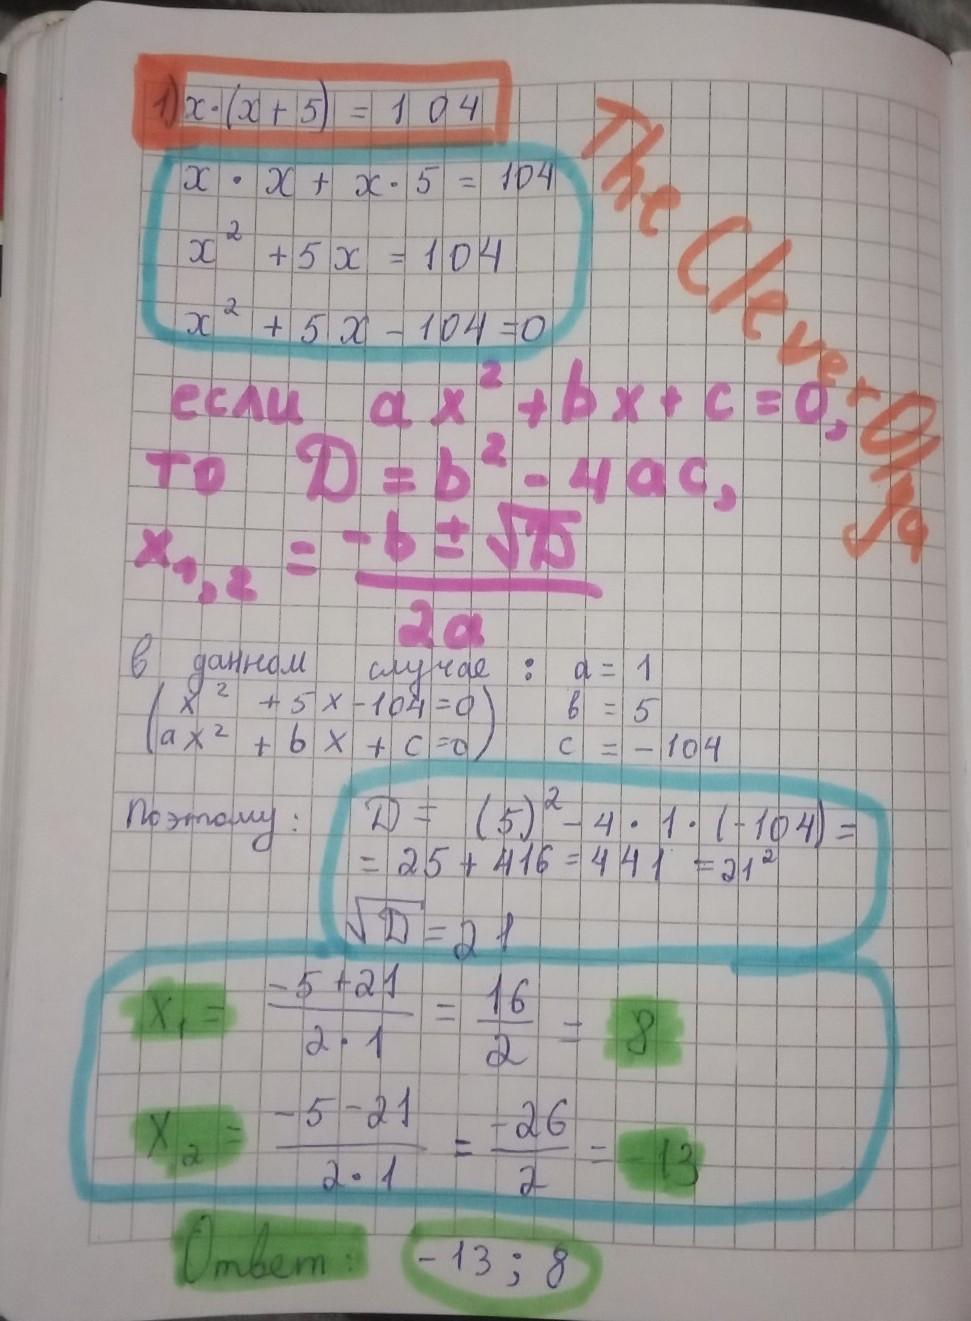 1) x·(x+5) = 104
x · x + x·5 = 104
x² + 5x = 104
x² + 5x - 104 = 0
The Clever Olya
если ax² + bx + c = 0,
то D = b² - 4ac,
x₁,₂ = (-b ± √D) / 2a
в данном случае : a = 1
(x² + 5x - 104 = 0) b = 5
(ax² + bx + c = 0) c = -104
Поэтому: D = (5)² - 4 · 1 · (-104) =
= 25 + 416 = 441 = 21²
√D = 21
x₁ = (-5 + 21) / (2·1) = 16/2 = 8
x₂ = (-5 - 21) / (2·1) = -26/2 = -13
Ответ: -13 ; 8